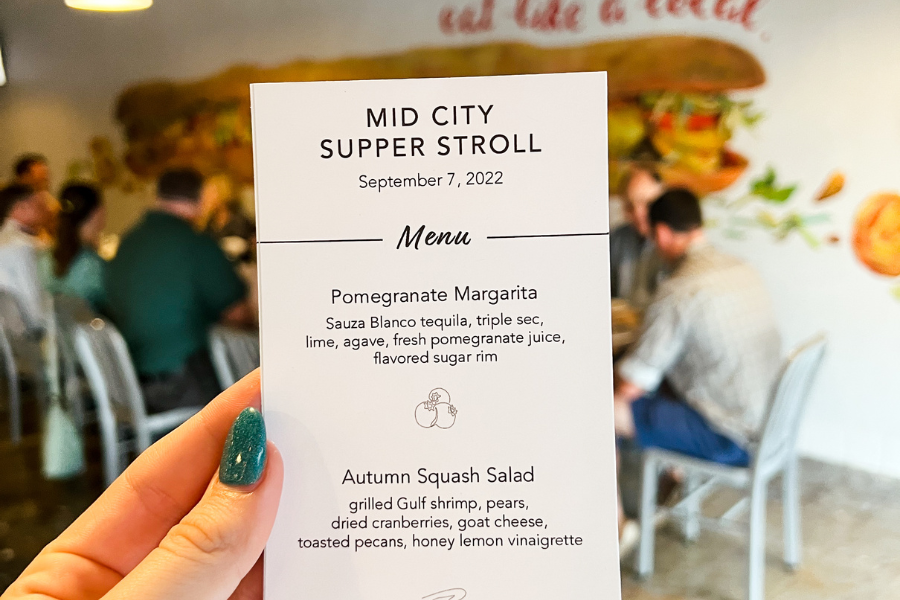 eat like a local.
MID CITY
SUPPER STROLL
September 7, 2022
Menu
Pomegranate Margarita
Sauza Blanco tequila, triple sec,
lime, agave, fresh pomegranate juice,
flavored sugar rim
Autumn Squash Salad
grilled Gulf shrimp, pears,
dried cranberries, goat cheese,
toasted pecans, honey lemon vinaigrette